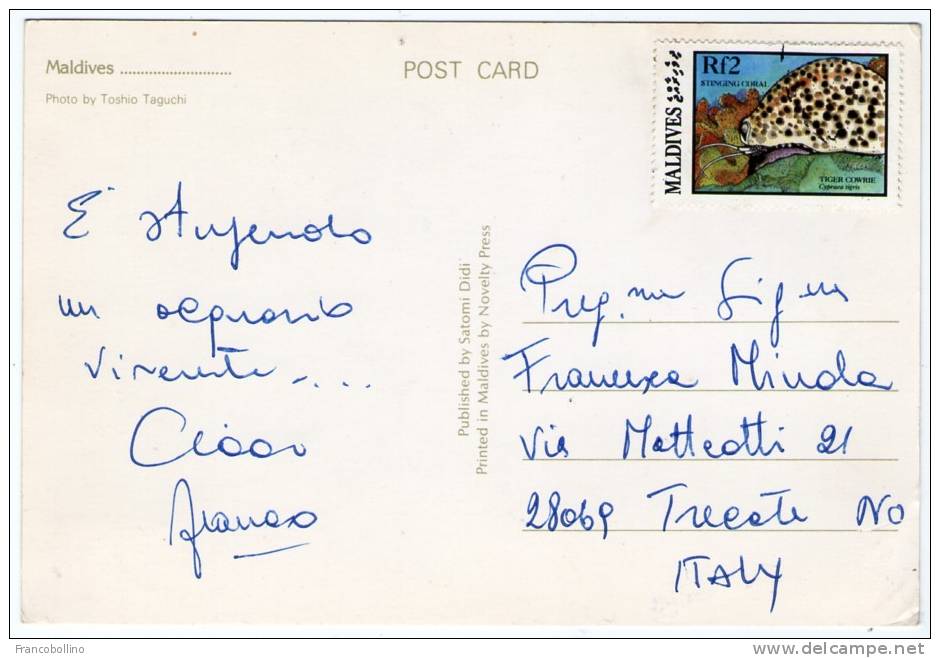 Maldives ............................
Photo by Toshio Taguchi
POST CARD
MALDIVES
Rf2
STINGING CORAL
TIGER COWRIE
Cypraea tigris
E' stupendo
un acquario
vivente....
Ciao
Franco
Published by Satomi Didi
Printed in Maldives by Novelty Press
Preg.ma Sig.ra
Francesca Minola
Via Matteotti 21
28069 Trecate No
ITALY
Francobollino
delcampe.net